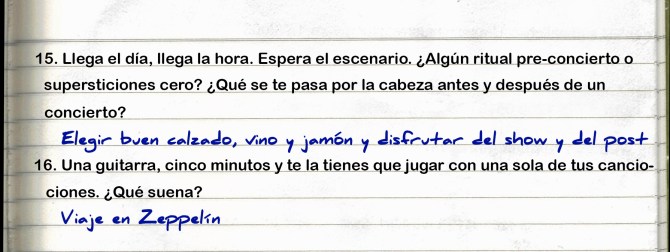 15. Llega el día, llega la hora. Espera el escenario. ¿Algún ritual pre-concierto o
supersticiones cero? ¿Qué se te pasa por la cabeza antes y después de un
concierto?
Elegir buen calzado, vino y jamón y disfrutar del show y del post
16. Una guitarra, cinco minutos y te la tienes que jugar con una sola de tus cancio-
ciones. ¿Qué suena?
Viaje en Zeppelín